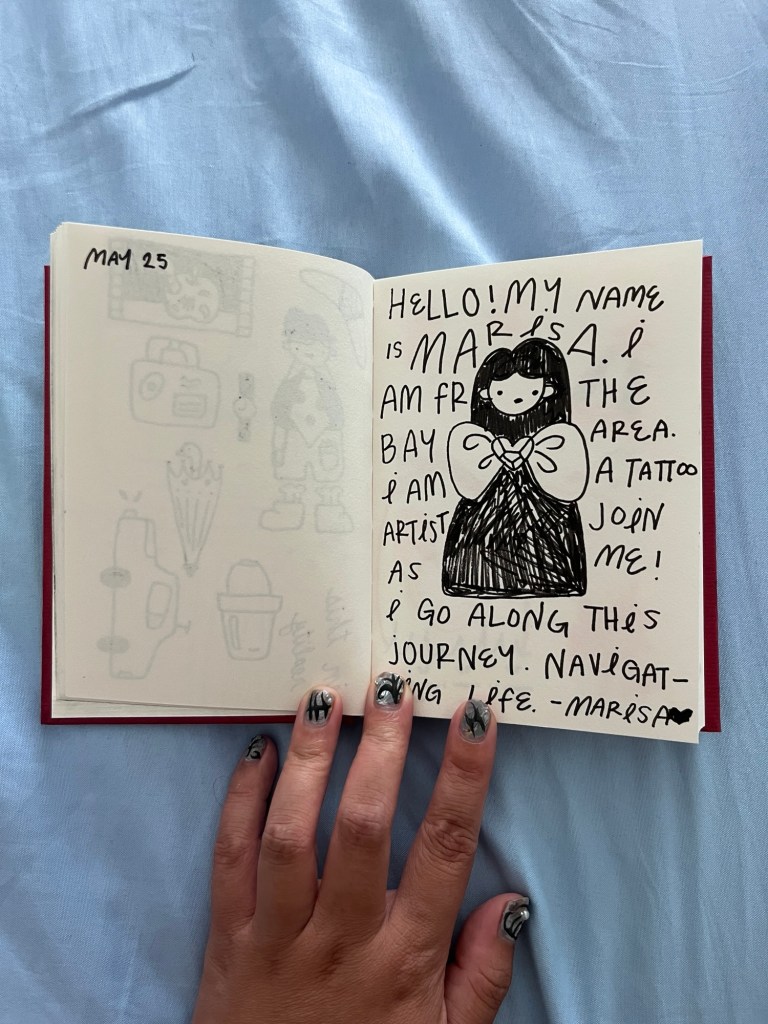 MAY 25
HELLO! MY NAME
IS MARISA. I
AM FR THE
BAY AREA.
I AM A TATTOO
ARTIST JOIN
AS ME!
I GO ALONG THIS
JOURNEY. NAVIGAT-
ING LIFE. -MARISA